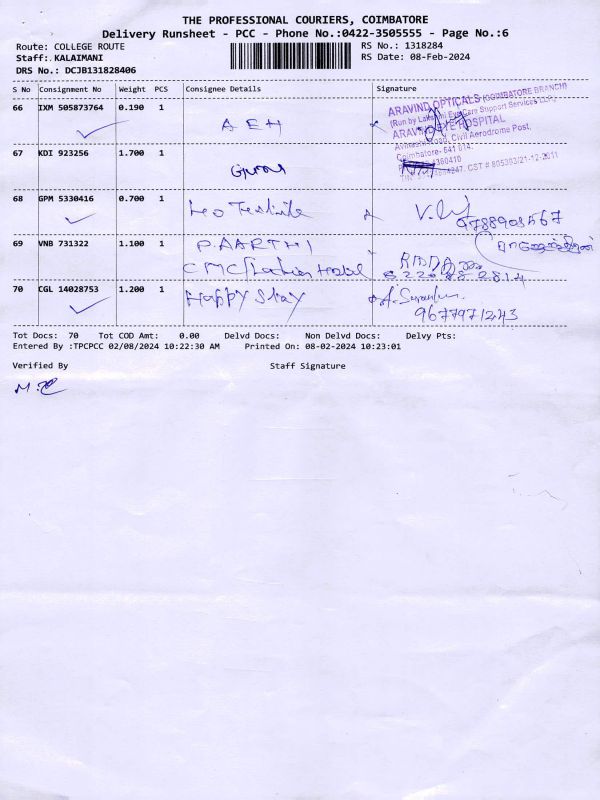 THE PROFESSIONAL COURIERS, COIMBATORE
Delivery Runsheet - PCC - Phone No.:0422-3505555 - Page No.:6
Route: COLLEGE ROUTE RS No.: 1318284
Staff: KALAIMANI RS Date: 08-Feb-2024
DRS No.: DCJB131828406
S No Consignment No Weight PCS Consignee Details Signature
66 IXM 505873764 0.190 1 AEH
ARAVIND OPTICALS (COIMBATORE BRANCH)
(Run by Lakshmi Eye Care Support Services LLP)
Avinashi Road, Civil Aerodrome Post,
Coimbatore- 641 014.
CST # 805393/21-12-2011
67 KDI 923256 1.700 1
68 GPM 5330416 0.700 1 Leo
9788908567
69 VNB 731322 1.100 1 P. AARTHI
CMC
70 CGL 14028753 1.200 1 Happy Stay
9677971243
Tot Docs: 70 Tot COD Amt: 0.00 Delvd Docs: Non Delvd Docs: Delvy Pts:
Entered By :TPCPCC 02/08/2024 10:22:30 AM Printed On: 08-02-2024 10:23:01
Verified By Staff Signature